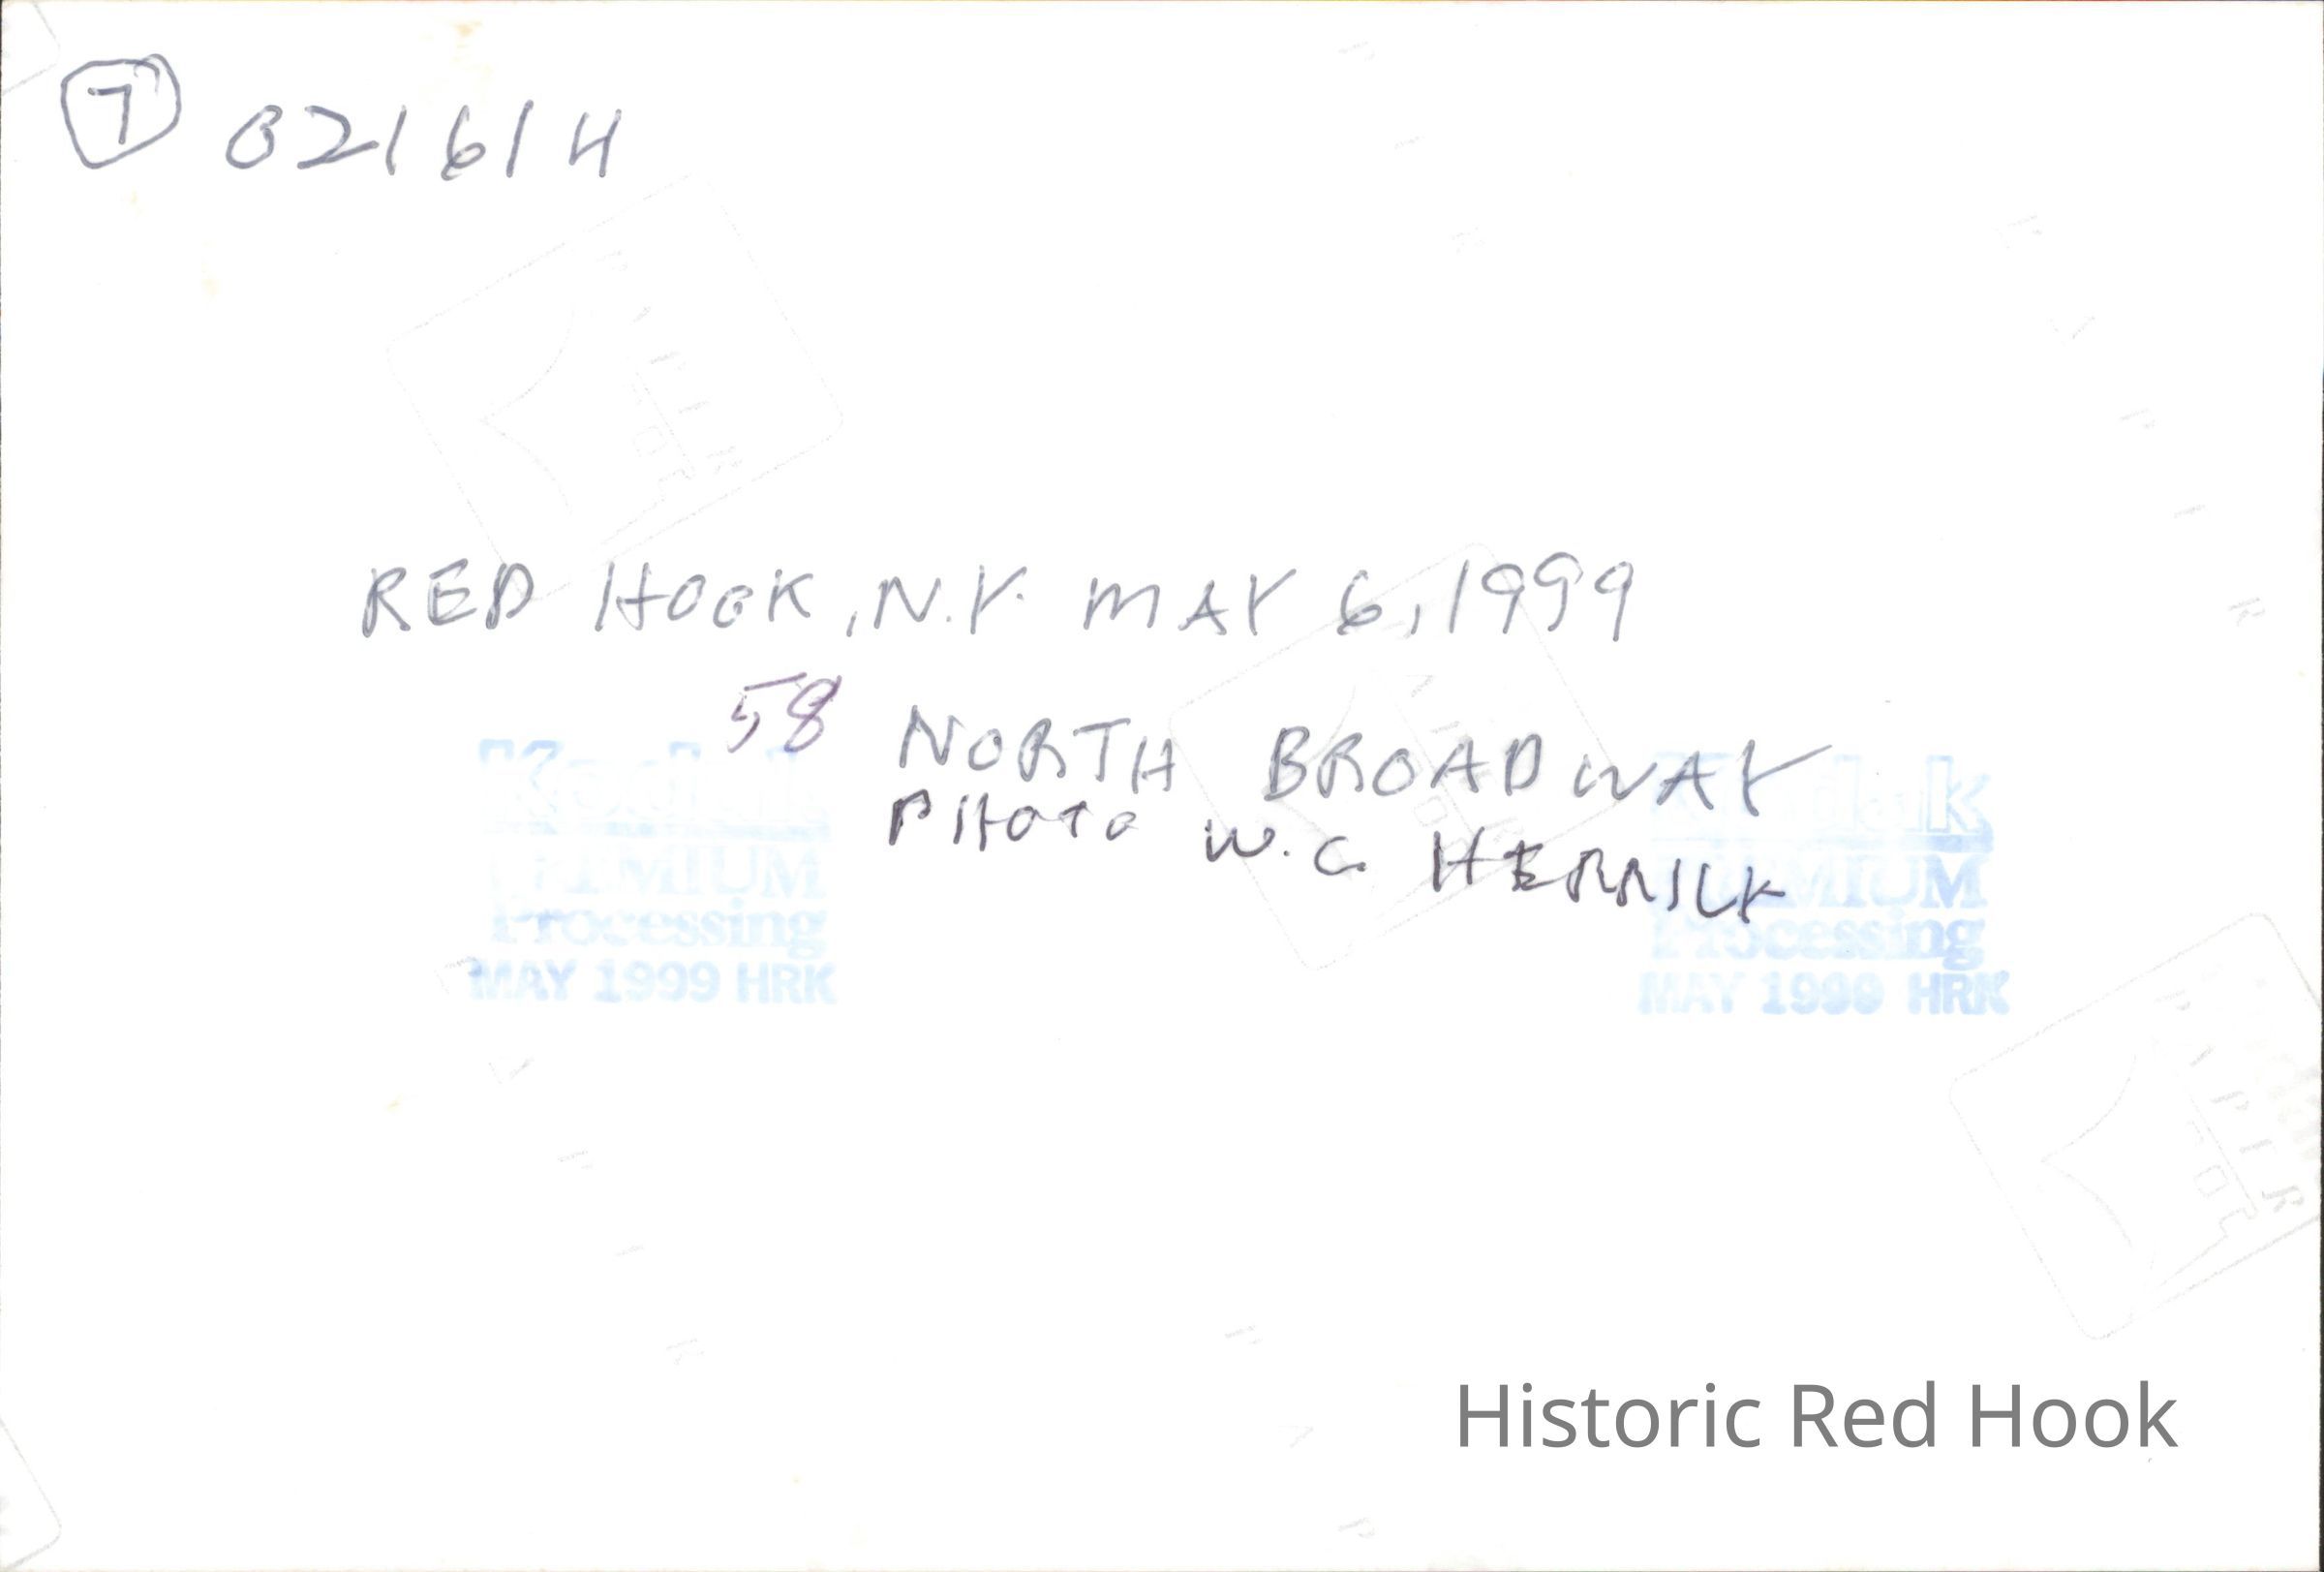 7 021614
RED HOOK, N.Y. MAY 6, 1999
58 NORTH BROADWAY
PHOTO W.C. HERRICK
Kodak
PREMIUM
Processing
MAY 1999 HRK
Kodak
PREMIUM
Processing
MAY 1999 HRK
Historic Red Hook